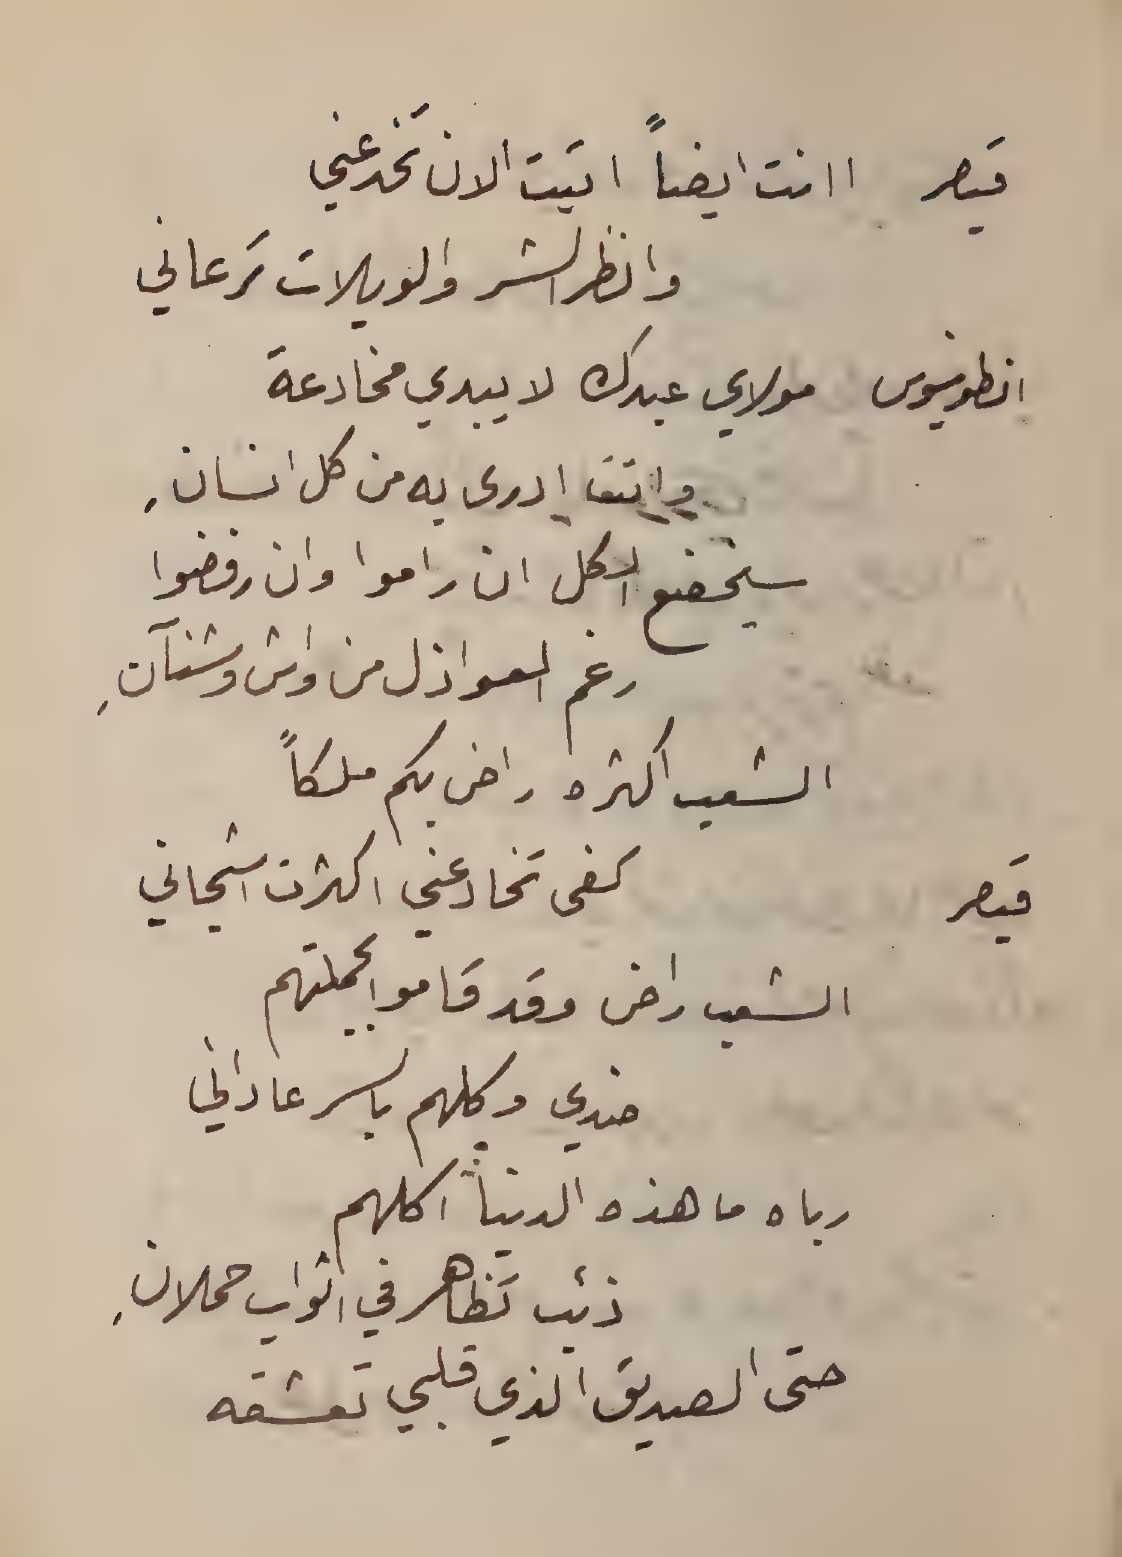 قيصر اانت ايضاً اتيت الان تخدعني
وانظر الشر والويلات ترعاني
انطونيوس مولاي عبدك لا يبدي مخادعة
وانت ادرى به من كل انسان
سيخضع الكل ان راموا وان رفضوا
رغم العواذل من واش وشنآن
الشعب اكثره راض بكم ملكاً
قيصر كفى تخادعني اكثرت اشجاني
الشعب راض وقد قاموا بجملتهم
ضدي وكلهم بالسر عاداني
رباه ما هذه الدنيا اكلهم
ذئب تظاهر في اثواب حملان
حتى الصديق الذي قلبي تعشقه